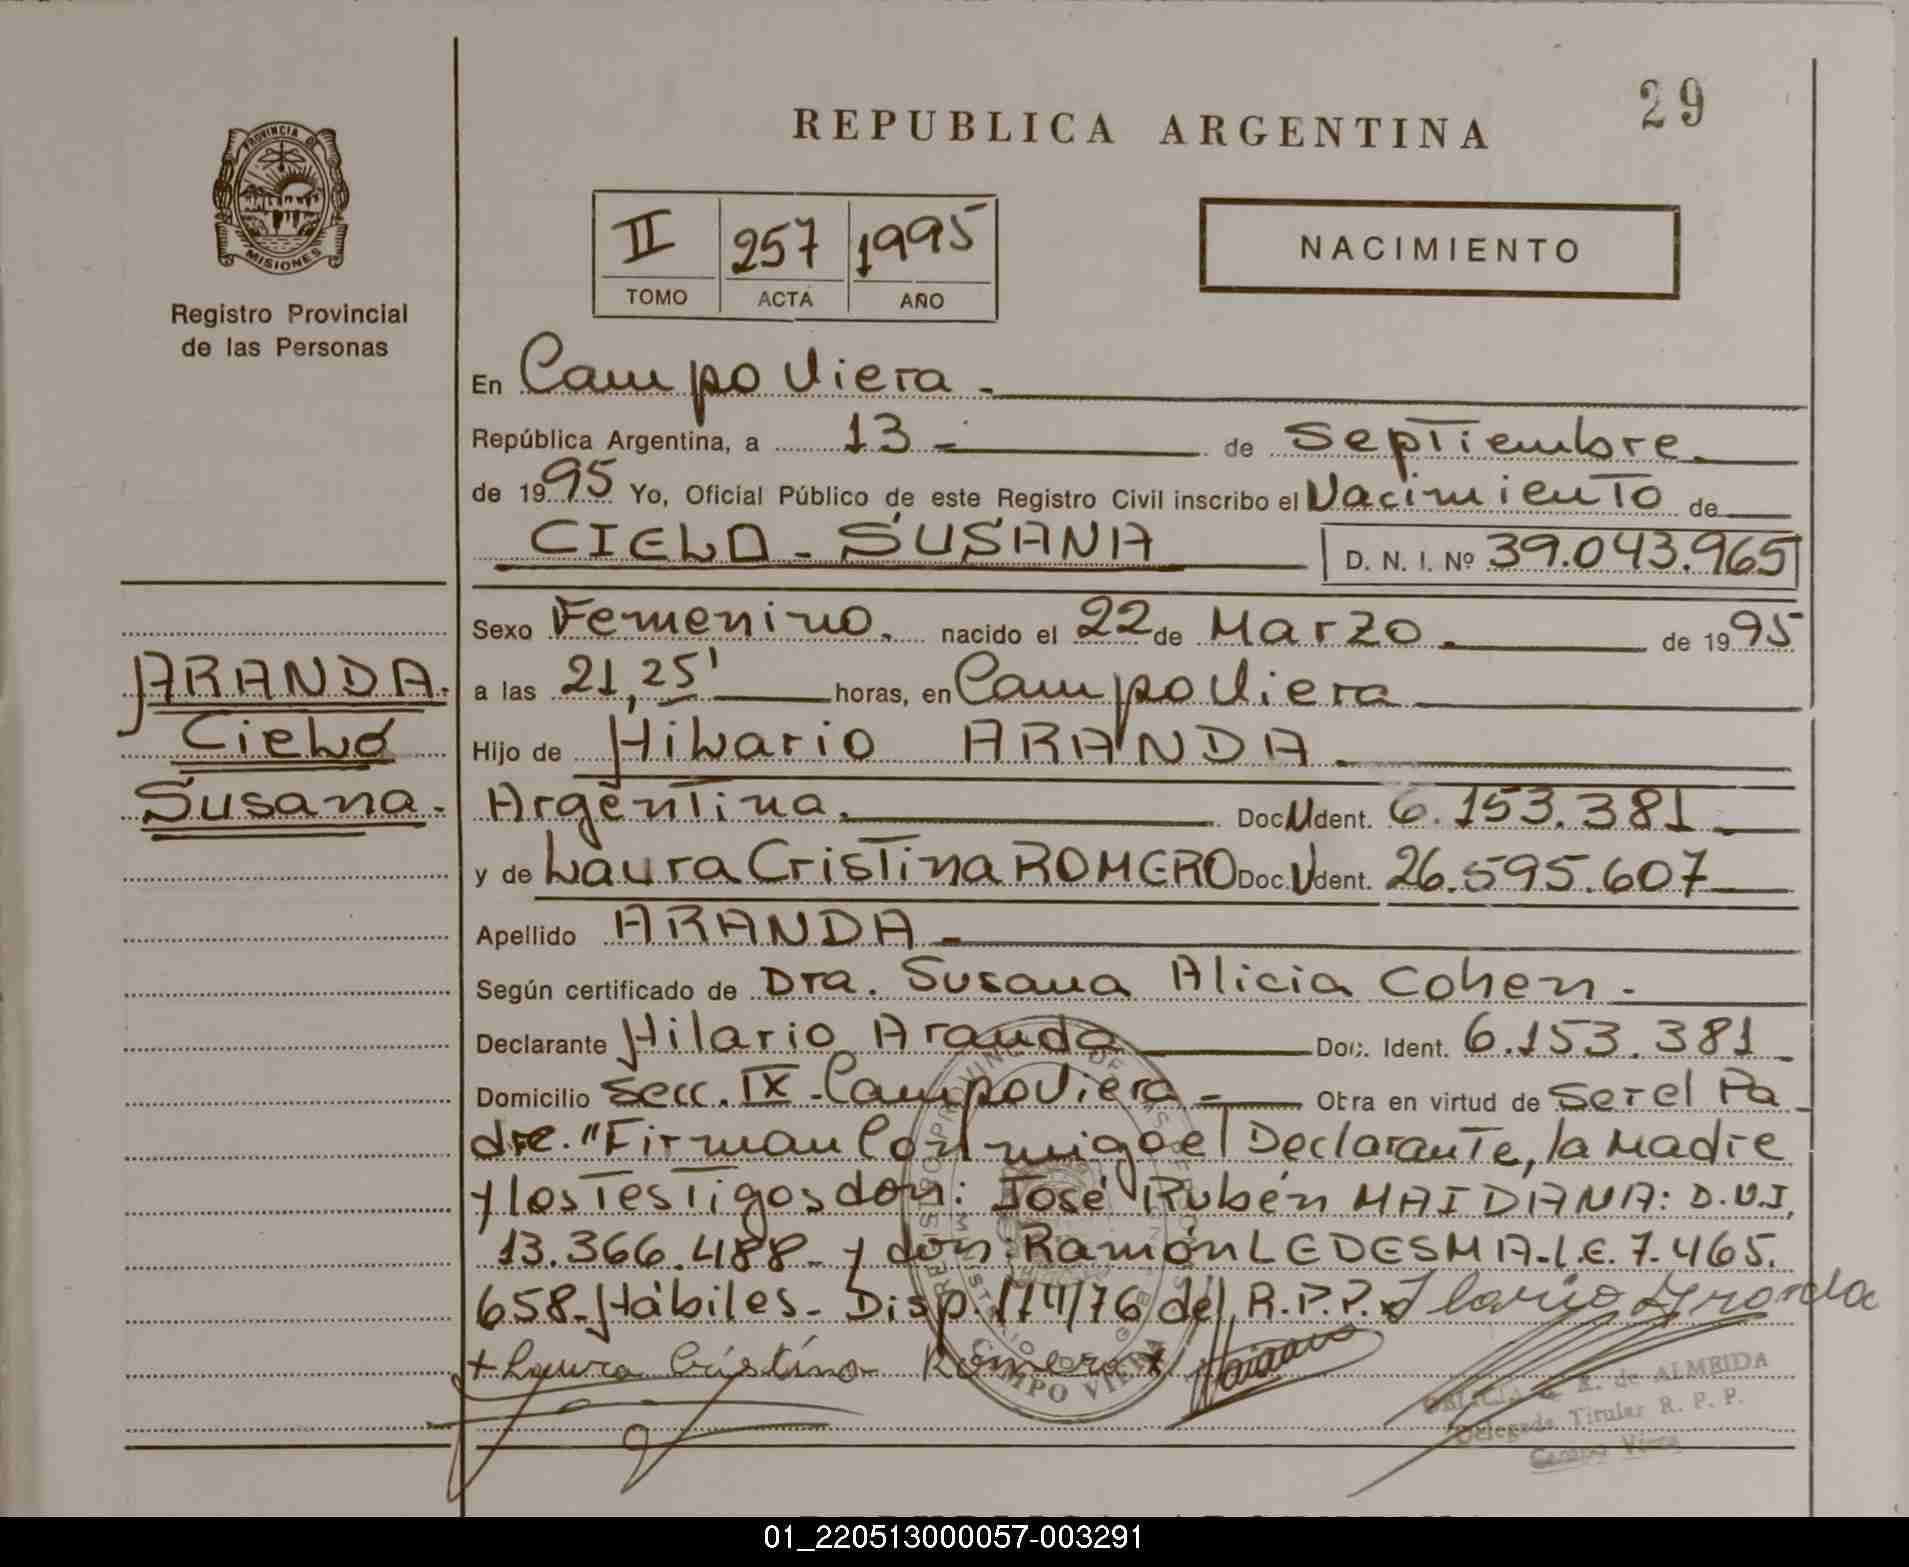 29
REPUBLICA ARGENTINA
PROVINCIA DE
MISIONES
Registro Provincial
de las Personas
II 257 1995
TOMO ACTA AÑO
NACIMIENTO
En Campo Viera.
República Argentina, a 13 de Septiembre.
de 1995 Yo, Oficial Público de este Registro Civil inscribo el Nacimiento de
CIELO - SUSANA D. N. I. Nº 39.043.965
Sexo Femenino. nacido el 22 de Marzo. de 1995
a las 21,25' horas, en Campo Viera
ARANDA.
Cielo
Susana.
Hijo de Hilario ARANDA.
Argentina. Doc. Ident. 6.153.381
y de Laura Cristina ROMERO Doc. Ident. 26.595.607
Apellido ARANDA
Según certificado de Dra. Susana Alicia Cohen.
Declarante Hilario Aranda Doc. Ident. 6.153.381
Domicilio Secc. IX - Campo Viera - Obra en virtud de ser el Pa-
dre. "Firman Conmigo el Declarante, la Madre
y los Testigos don: José Rubén MAIDANA: D.N.I.
13.366.488 - y don: Ramón LEDESMA - L.E. 7.465.
658 - Hábiles - Disp. 174/76 del R.P.P. x Ilario Aranda
+ Laura Cristina Romero x
CAMPO VIERA
de ALMEIDA
Delegada Titular R. P. P.
Campo Viera
01_220513000057-003291